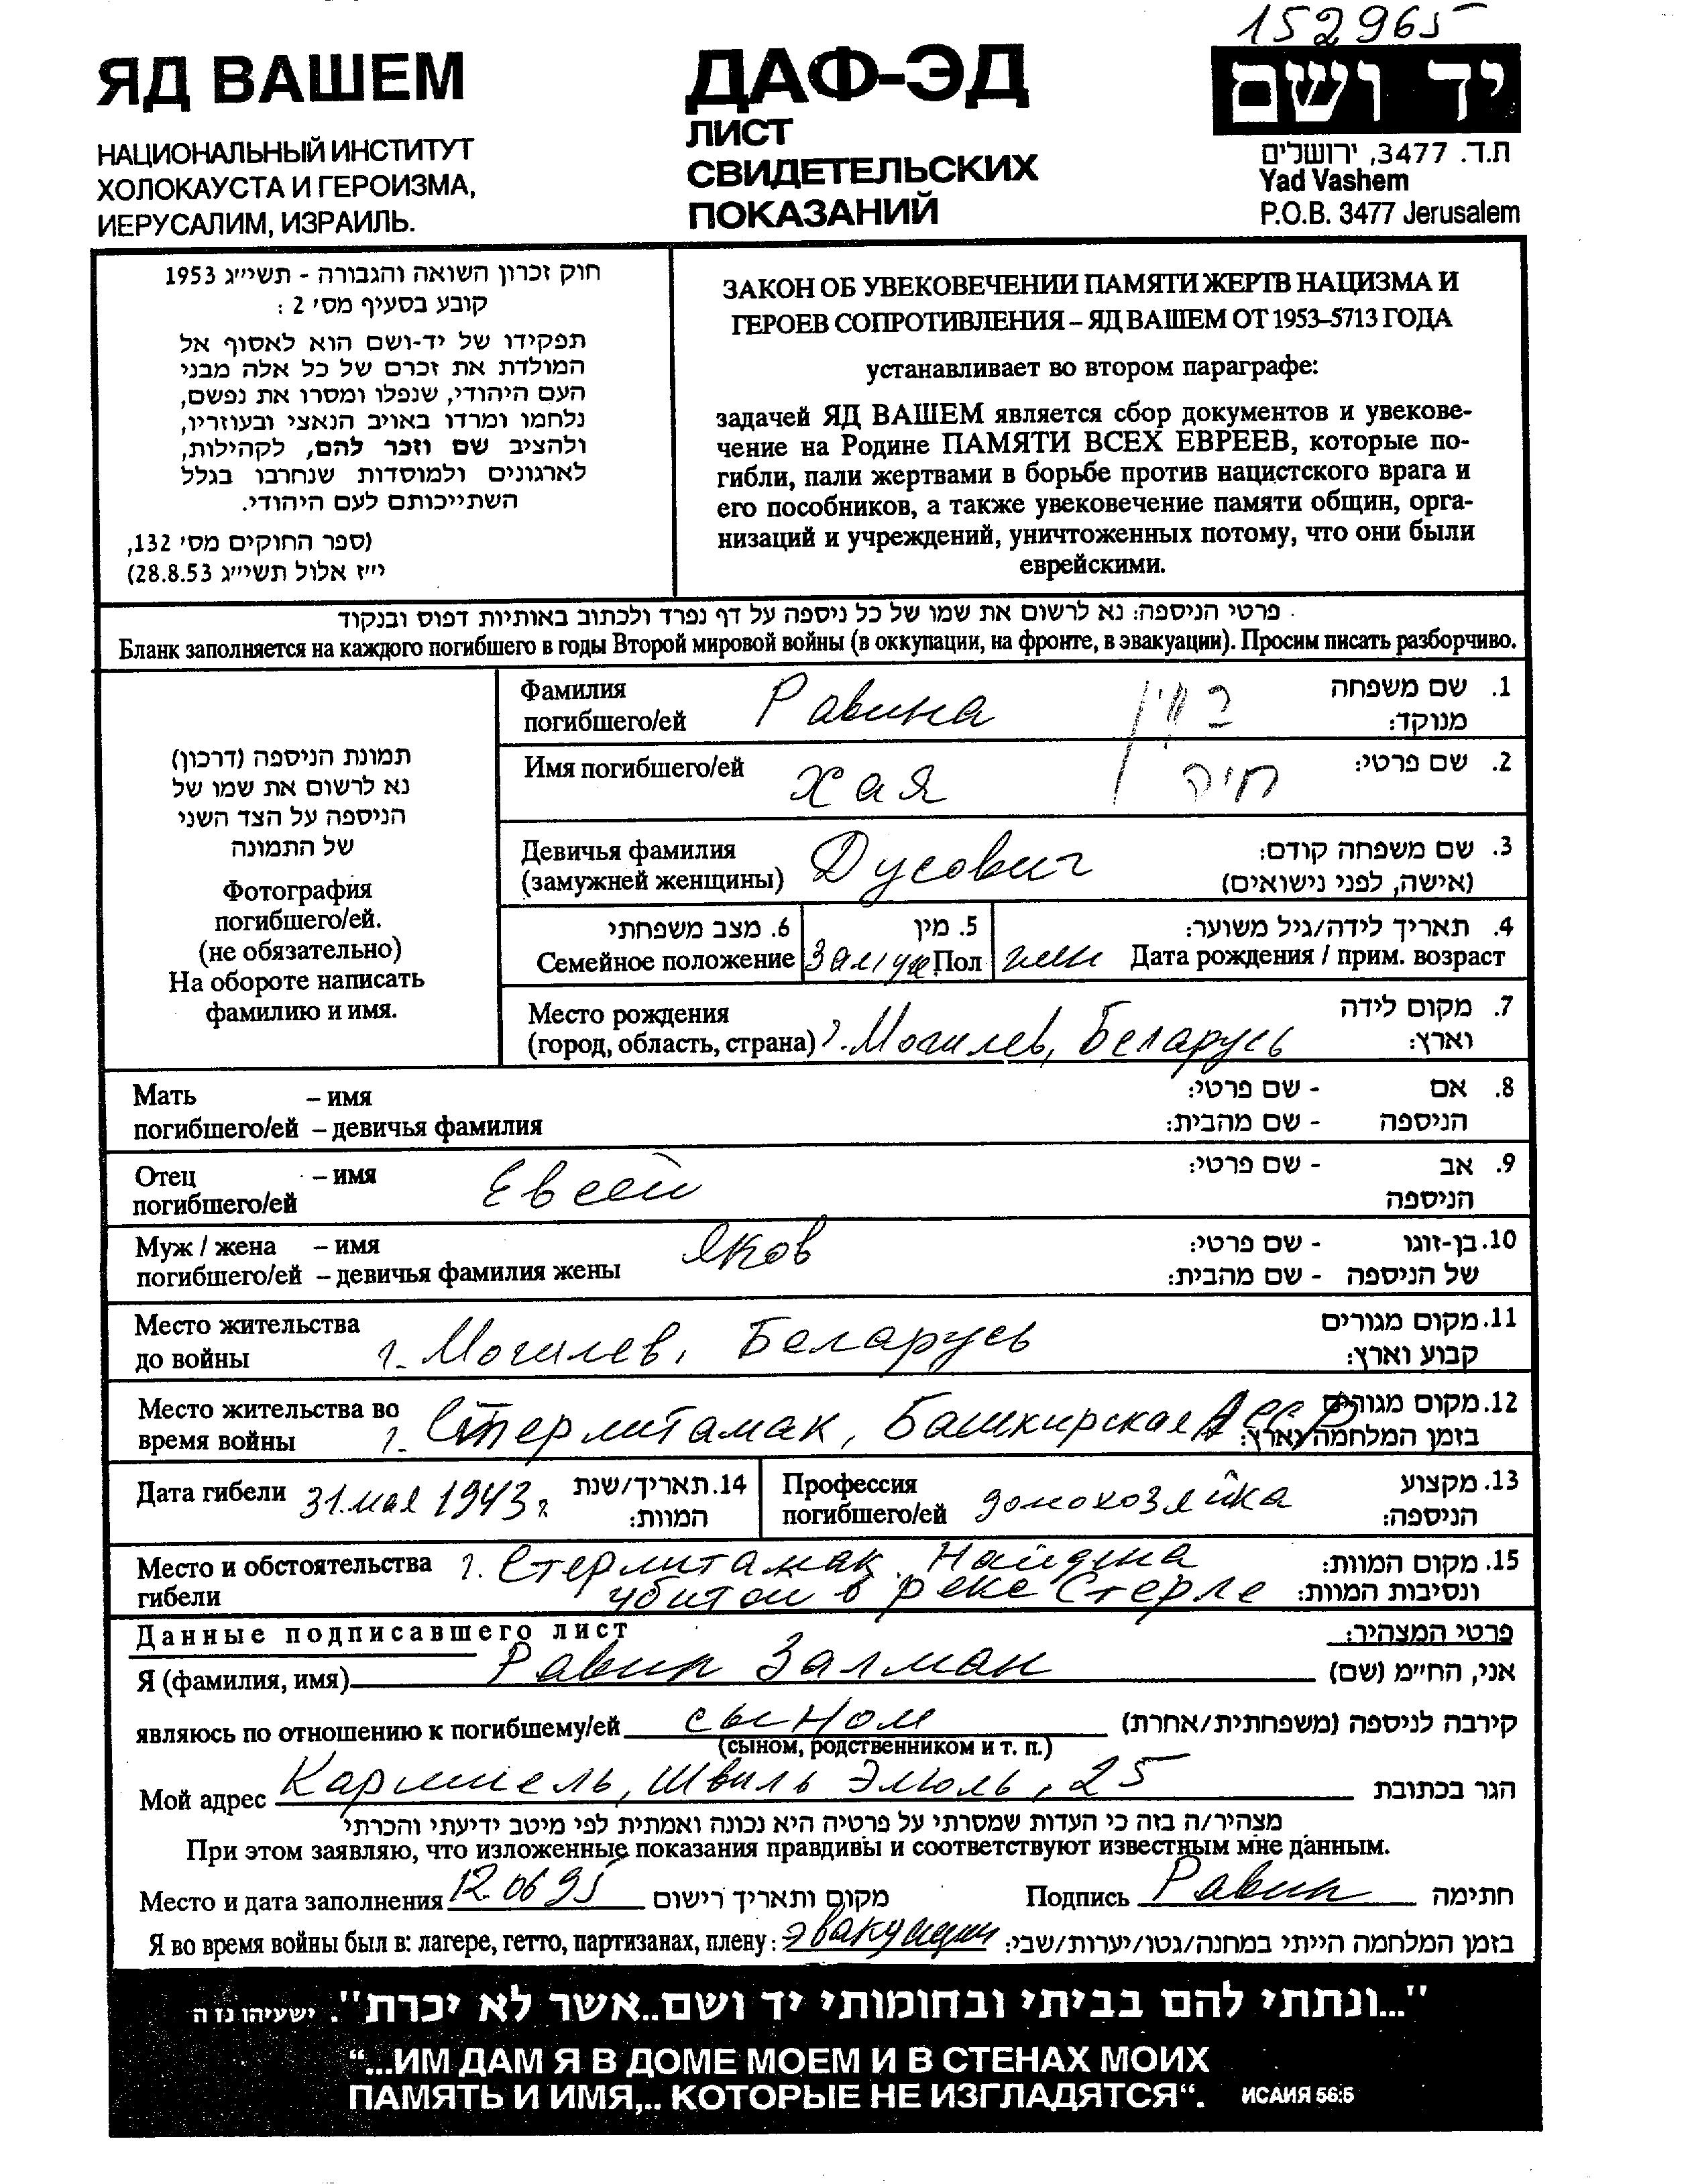 152965
ЯД ВАШЕМ
НАЦИОНАЛЬНЫЙ ИНСТИТУТ
ХОЛОКАУСТА И ГЕРОИЗМА,
ИЕРУСАЛИМ, ИЗРАИЛЬ.
ДАФ-ЭД
ЛИСТ
СВИДЕТЕЛЬСКИХ
ПОКАЗАНИЙ
יד ושם
ת.ד. 3477, ירושלים
Yad Vashem
P.O.B. 3477 Jerusalem
חוק זכרון השואה והגבורה - תשי״ג 1953
קובע בסעיף מס׳ 2 :
תפקידו של יד-ושם הוא לאסוף אל
המולדת את זכרם של כל אלה מבני
העם היהודי, שנפלו ומסרו את נפשם,
נלחמו ומרדו באויב הנאצי ובעוזריו,
ולהציב שם וזכר להם, לקהילות,
לארגונים ולמוסדות שנחרבו בגלל
השתייכותם לעם היהודי.
(ספר החוקים מס׳ 132,
י״ז אלול תשי״ג 28.8.53)
ЗАКОН ОБ УВЕКОВЕЧЕНИИ ПАМЯТИ ЖЕРТВ НАЦИЗМА И
ГЕРОЕВ СОПРОТИВЛЕНИЯ – ЯД ВАШЕМ ОТ 1953–5713 ГОДА
устанавливает во втором параграфе:
задачей ЯД ВАШЕМ является сбор документов и увекове-
чение на Родине ПАМЯТИ ВСЕХ ЕВРЕЕВ, которые по-
гибли, пали жертвами в борьбе против нацистского врага и
его пособников, а также увековечение памяти общин, орга-
низаций и учреждений, уничтоженных потому, что они были
еврейскими.
פרטי הניספה: נא לרשום את שמו של כל ניספה על דף נפרד ולכתוב באותיות דפוס ובנקוד
Бланк заполняется на каждого погибшего в годы Второй мировой войны (в оккупации, на фронте, в эвакуации). Просим писать разборчиво.
תמונת הניספה (דרכון)
נא לרשום את שמו של
הניספה על הצד השני
של התמונה
Фотография
погибшего/ей.
(не обязательно)
На обороте написать
фамилию и имя.
Фамилия
погибшего/ей Равина
1. שם משפחה
מנוקד:
Имя погибшего/ей Хая חיה 2. שם פרטי:
Девичья фамилия
(замужней женщины) Дусович
3. שם משפחה קודם:
(אישה, לפני נישואים)
6. מצב משפחתי
Семейное положение Замуж
5. מין
Пол жен
4. תאריך לידה/גיל משוער:
Дата рождения / прим. возраст
Место рождения
(город, область, страна) г. Могилев, Беларусь
7. מקום לידה
וארץ:
Мать – имя
погибшего/ей – девичья фамилия
8. אם - שם פרטי:
הניספה - שם מהבית:
Отец – имя
погибшего/ей Евсей
9. אב - שם פרטי:
הניספה
Муж / жена – имя Яков
погибшего/ей – девичья фамилия жены
10. בן-זוגו - שם פרטי:
של הניספה - שם מהבית:
Место жительства
до войны г. Могилев, Беларусь
11. מקום מגורים
קבוע וארץ:
Место жительства во
время войны г. Стерлитамак, Башкирская АССР
12. מקום מגורים
בזמן המלחמה וארץ:
Дата гибели 31. мая 1943 г
14. תאריך/שנת
המוות:
Профессия
погибшего/ей домохозяйка
13. מקצוע
הניספה:
Место и обстоятельства г. Стерлитамак. Найдена
гибели убитой в реке Стерле
15. מקום המוות:
ונסיבות המוות:
Данные подписавшего лист פרטי המצהיר:
Я (фамилия, имя) Равин Залман אני, הח״מ (שם)
являюсь по отношению к погибшему/ей сыном קירבה לניספה (משפחתית/אחרת)
(сыном, родственником и т. п.)
Мой адрес Кармиель, Швиль Элюль, 25 הגר בכתובת
מצהיר/ה בזה כי העדות שמסרתי על פרטיה היא נכונה ואמתית לפי מיטב ידיעתי והכרתי
При этом заявляю, что изложенные показания правдивы и соответствуют известным мне данным.
Место и дата заполнения 12.06 95 מקום ותאריך רישום Подпись Равин חתימה
Я во время войны был в: лагере, гетто, партизанах, плену: эвакуации בזמן המלחמה הייתי במחנה/גטו/יערות/שבי:
"...ונתתי להם בביתי ובחומותי יד ושם..אשר לא יכרת". ישעיהו נו ה
“...ИМ ДАМ Я В ДОМЕ МОЕМ И В СТЕНАХ МОИХ
ПАМЯТЬ И ИМЯ,.. КОТОРЫЕ НЕ ИЗГЛАДЯТСЯ“. ИСАИЯ 56:5